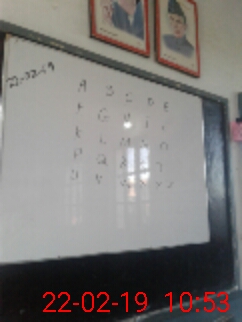 22-02-19
A B C D E
F G H I J
K L M N O
P Q R S T
U V W X Y Z
22-02-19 10:53